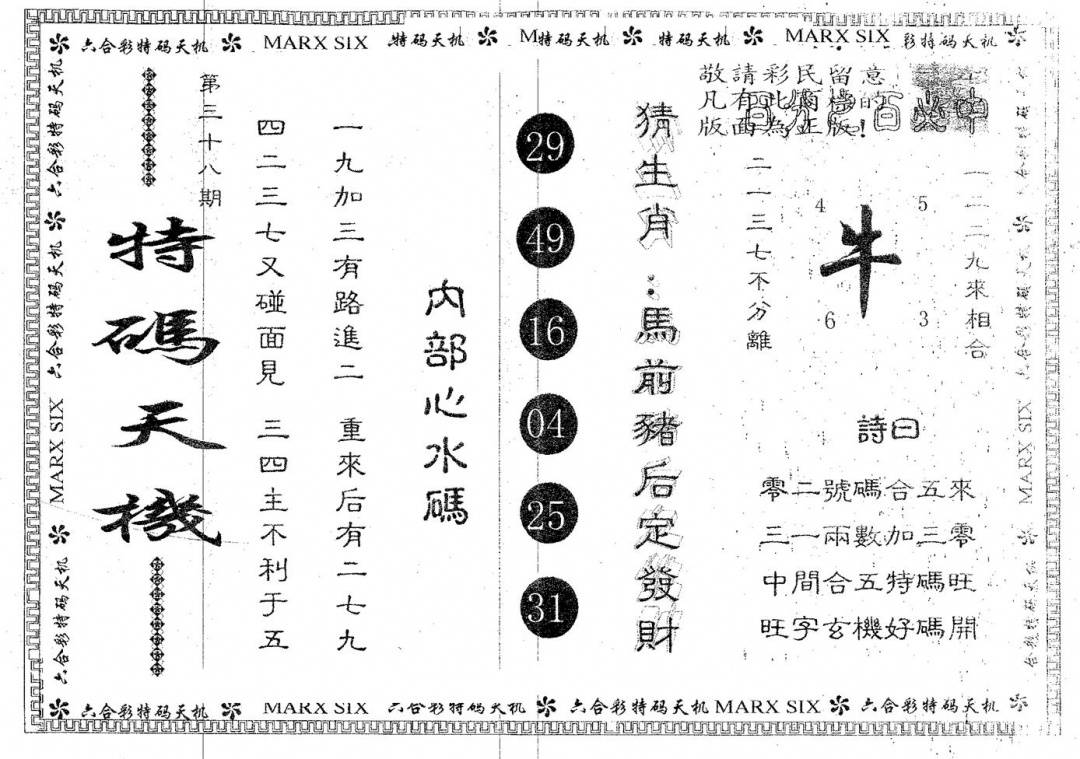 六合彩特码天机 MARX SIX 特码天机 M特码天机 特码天机 MARX SIX 彩特码天机
敬請彩民留意
凡有此商標的
版面為正版!
百分百必中
一二二九來相合
牛
4
5
6
3
二一三七不分離
詩曰
零二號碼合五來
三一兩數加三零
中間合五特碼旺
旺字玄機好碼開
猜生肖:馬前豬后定發財
29
49
16
04
25
31
內部心水碼
一九加三有路進二 重來后有二七九
四二三七又碰面見 三四主不利于五
第三十八期
特碼天機
六合彩特码天机 MARX SIX 六合彩特码天机 六合彩特码天机
六合彩特码天机 MARX SIX 六合彩特码天机
六合彩特码天机 MARX SIX 六合彩特码天机 六合彩特码天机 MARX SIX 六合彩特码天机